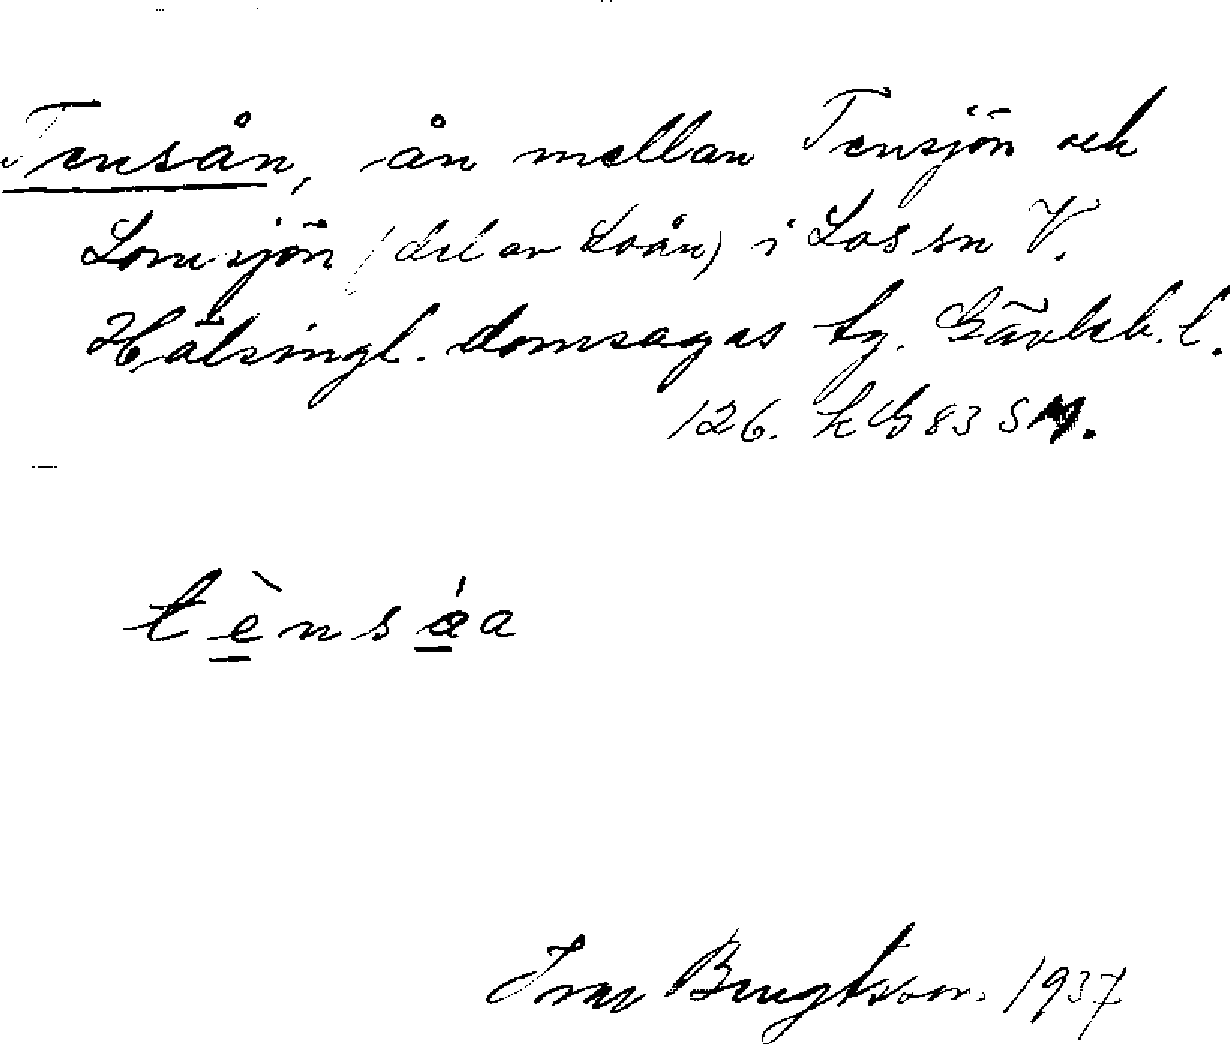 Tensån, ån mellan Tensjön och
Lomsjön (del av Loån) i Los sn V.
Hälsingl. domsagas tg. Gävleb. l.
126. k G 83 S M.
tènsa̍a
Ivar Bengtsson. 1937